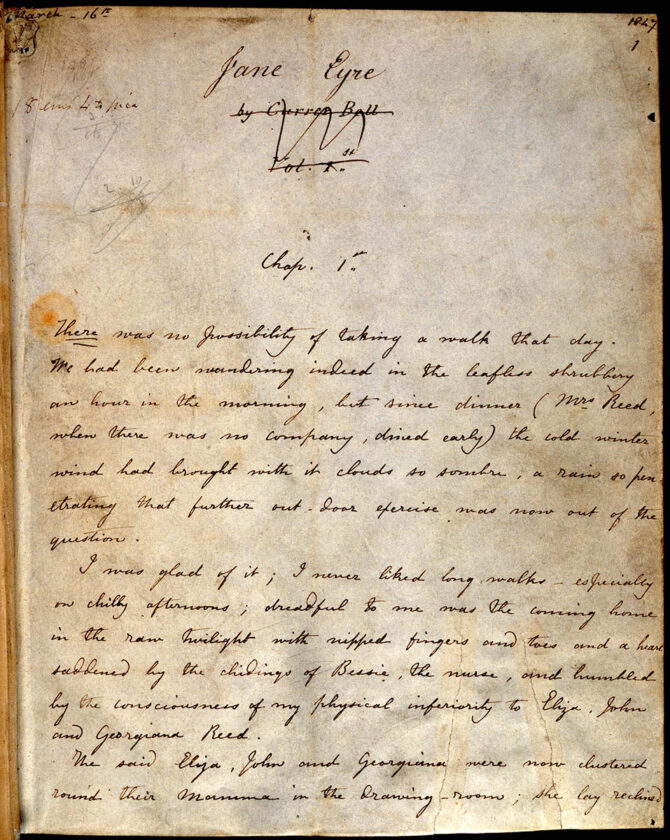 March - 16th 1847
1
Jane Eyre
18 ems 4to pica
by Currer Bell
Vol. 1.st
Chap. 1.st
There was no possibility of taking a walk that day.
We had been wandering indeed in the leafless shrubbery
an hour in the morning, but since dinner (Mrs Reed,
when there was no company, dined early) the cold winter
wind had brought with it clouds so sombre, a rain so pen-
etrating that further out-door exercise was now out of the
question.
I was glad of it; I never liked long walks - especially
on chilly afternoons; dreadful to me was the coming home
in the raw twilight with nipped fingers and toes and a heart
saddened by the chidings of Bessie, the nurse, and humbled
by the consciousness of my physical inferiority to Eliza, John
and Georgiana Reed.
The said Eliza, John and Georgiana were now clustered
round their Mamma in the drawing-room; she lay reclined